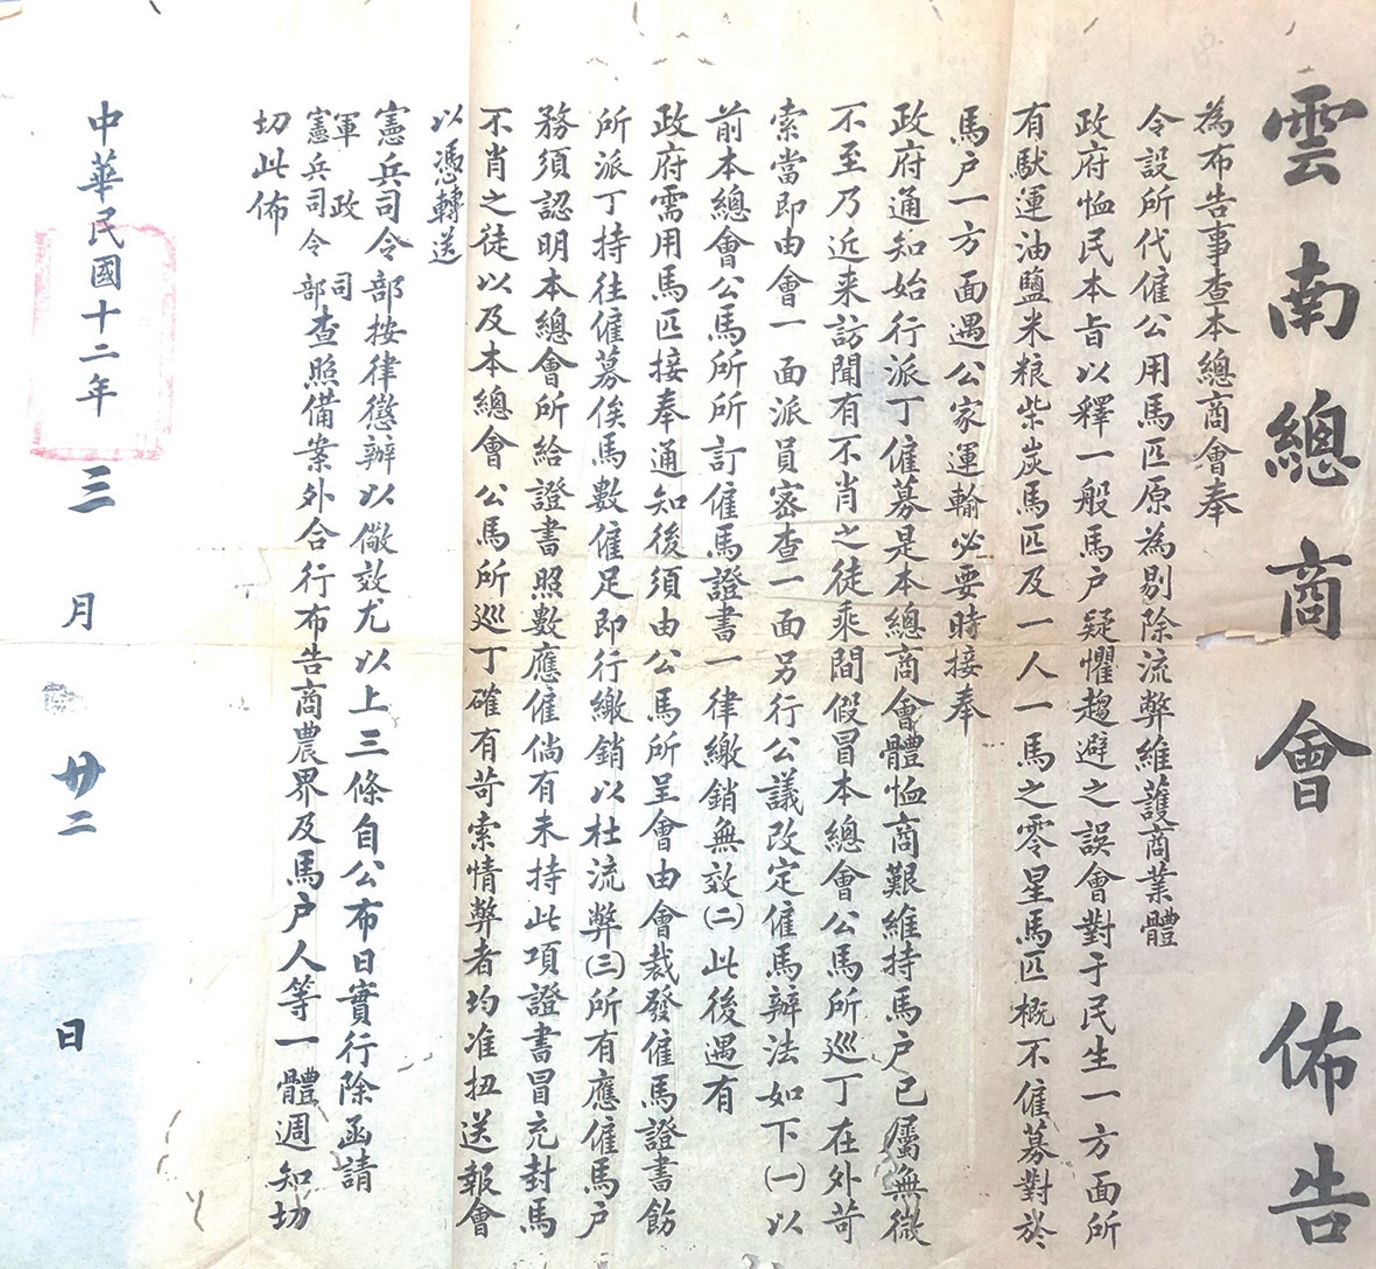 雲南總商會佈告
為布告事查本總商會奉
令設所代僱公用馬匹原為剔除流弊維護商業體
政府恤民本旨以釋一般馬戶疑懼趨避之誤會對于民生一方面所
有馱運油鹽米粮柴炭馬匹及一人一馬之零星馬匹概不僱募對於
馬戶一方面遇公家運輸必要時接奉
政府通知始行派丁僱募是本總商會體恤商艱維持馬戶已屬無微
不至乃近来訪聞有不肖之徒乘間假冒本總會公馬所巡丁在外苛
索當即由會一面派員密查一面另行公議改定僱馬辦法如下㈠以
前本總會公馬所所訂僱馬證書一律繳銷無效㈡此後遇有
政府需用馬匹接奉通知後須由公馬所呈會由會裁發僱馬證書飭
所派丁持往僱募俟馬數僱足即行繳銷以杜流弊㈢所有應僱馬戶
務須認明本總會所給證書照數應僱倘有未持此項證書冒充封馬
不肖之徒以及本總會公馬所巡丁確有苛索情弊者均准扭送報會
以憑轉送
憲兵司令部按律懲辦以儆效尤以上三條自公布日實行除函請
軍政司
憲兵司令部查照備案外合行布告商農界及馬戶人等一體週知切
切此佈
中華民國十二年三月廿二日